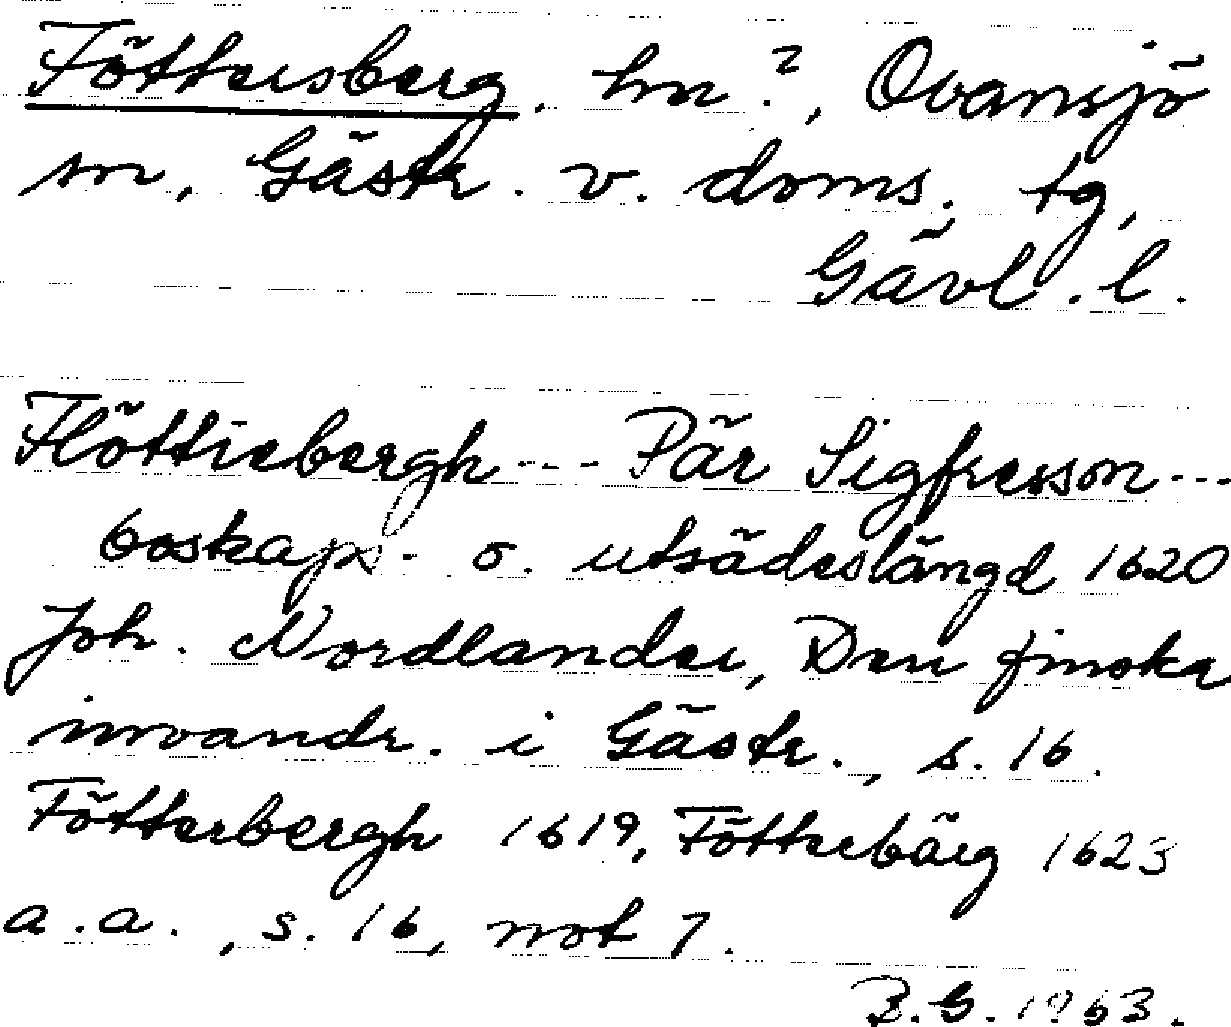 Föttersberg, hn?, Ovansjö
sn, Gästr. v. doms. tg,
Gävl. l.
Flöttiebergh --- Pär Sigfresson ---
boskaps- o. utsädeslängd 1620
Joh. Nordlander, Den finska
invandr. i Gästr., s. 16.
Fötterbergh 1619, Fötterbärg 1623
a.a., s. 16, not 7.
B.G. 1963.